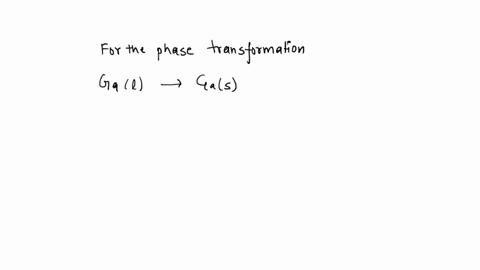 For the phase transformation
Ga(l) → Ga(s)